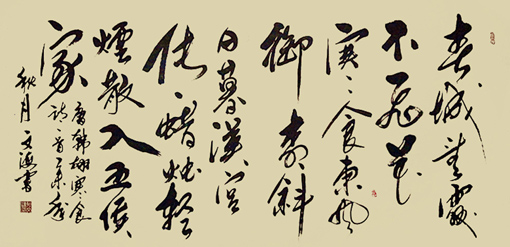 春城無處
不飛花
寒食東風
御柳斜
日暮漢宮
傳蠟燭輕
煙散入五侯
家
唐韓翃寒食
詩一首
秋月文海書